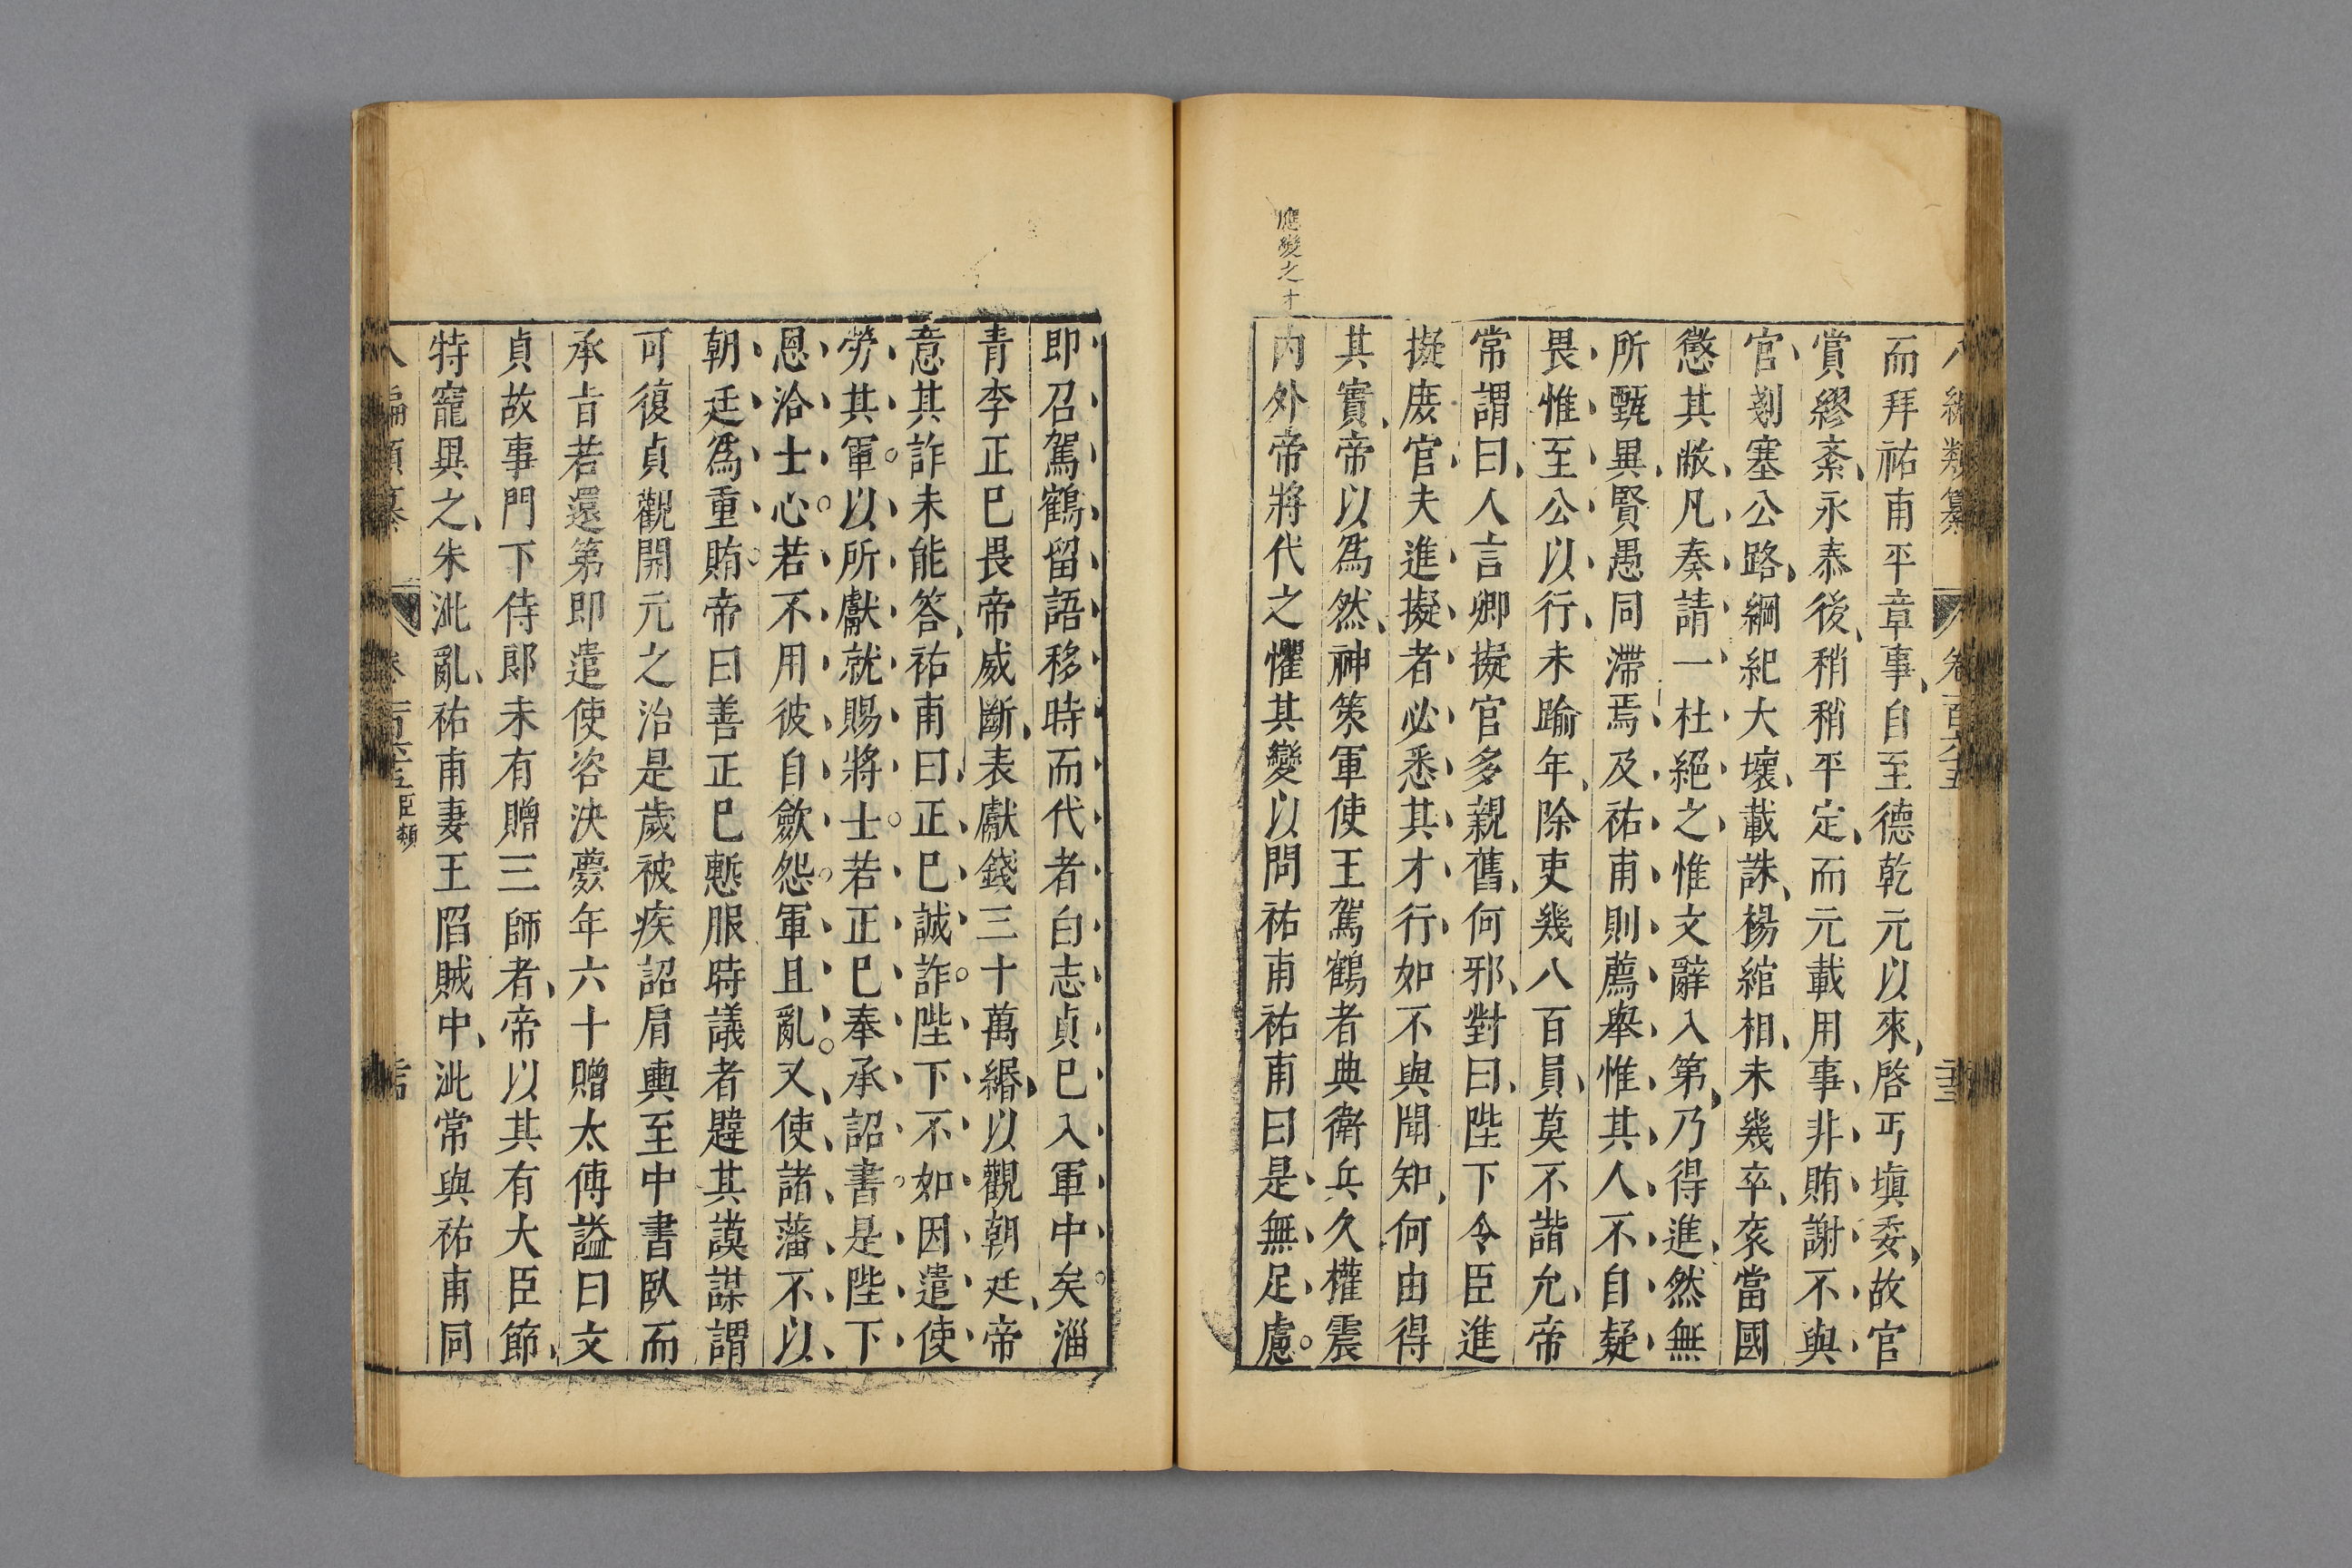 八編類纂 卷一百六十五 二十三
而拜祐甫平章事自至德乾元以來啓丐塡委故官
賞繆紊永泰後稍稍平定而元載用事非賄謝不與
官剗塞公路綱紀大壞載誅楊綰相未幾卒衮當國
懲其敝凡奏請一杜絕之惟文辭入第乃得進然無
所甄異賢愚同滯焉及祐甫則薦舉惟其人不自疑
畏惟至公以行未踰年除吏幾八百員莫不諧允帝
常謂曰人言卿擬官多親舊何邪對曰陛下令臣進
擬庶官夫進擬者必悉其才行如不與聞知何由得
其實帝以爲然神策軍使王駕鶴者典衛兵久權震
應變之才
內外帝將代之懼其變以問祐甫祐甫曰是無足慮
即召駕鶴留語移時而代者白志貞已入軍中矣淄
青李正已畏帝威斷表獻錢三十萬緡以觀朝廷帝
意其詐未能答祐甫曰正巳誠詐陛下不如因遣使
勞其軍以所獻就賜將士若正巳奉承詔書是陛下
恩洽士心若不用彼自歛怨軍且亂又使諸藩不以
朝廷爲重賄帝曰善正巳慙服時議者韙其謨謀謂
可復貞觀開元之治是歲被疾詔肩輿至中書臥而
承旨若還第即遣使咨決薨年六十贈太傅謚曰文
貞故事門下侍郎未有贈三師者帝以其有大臣節
特寵異之朱泚亂祐甫妻王䧟賊中泚常與祐甫同
八編類纂 卷一百六十五 臣類